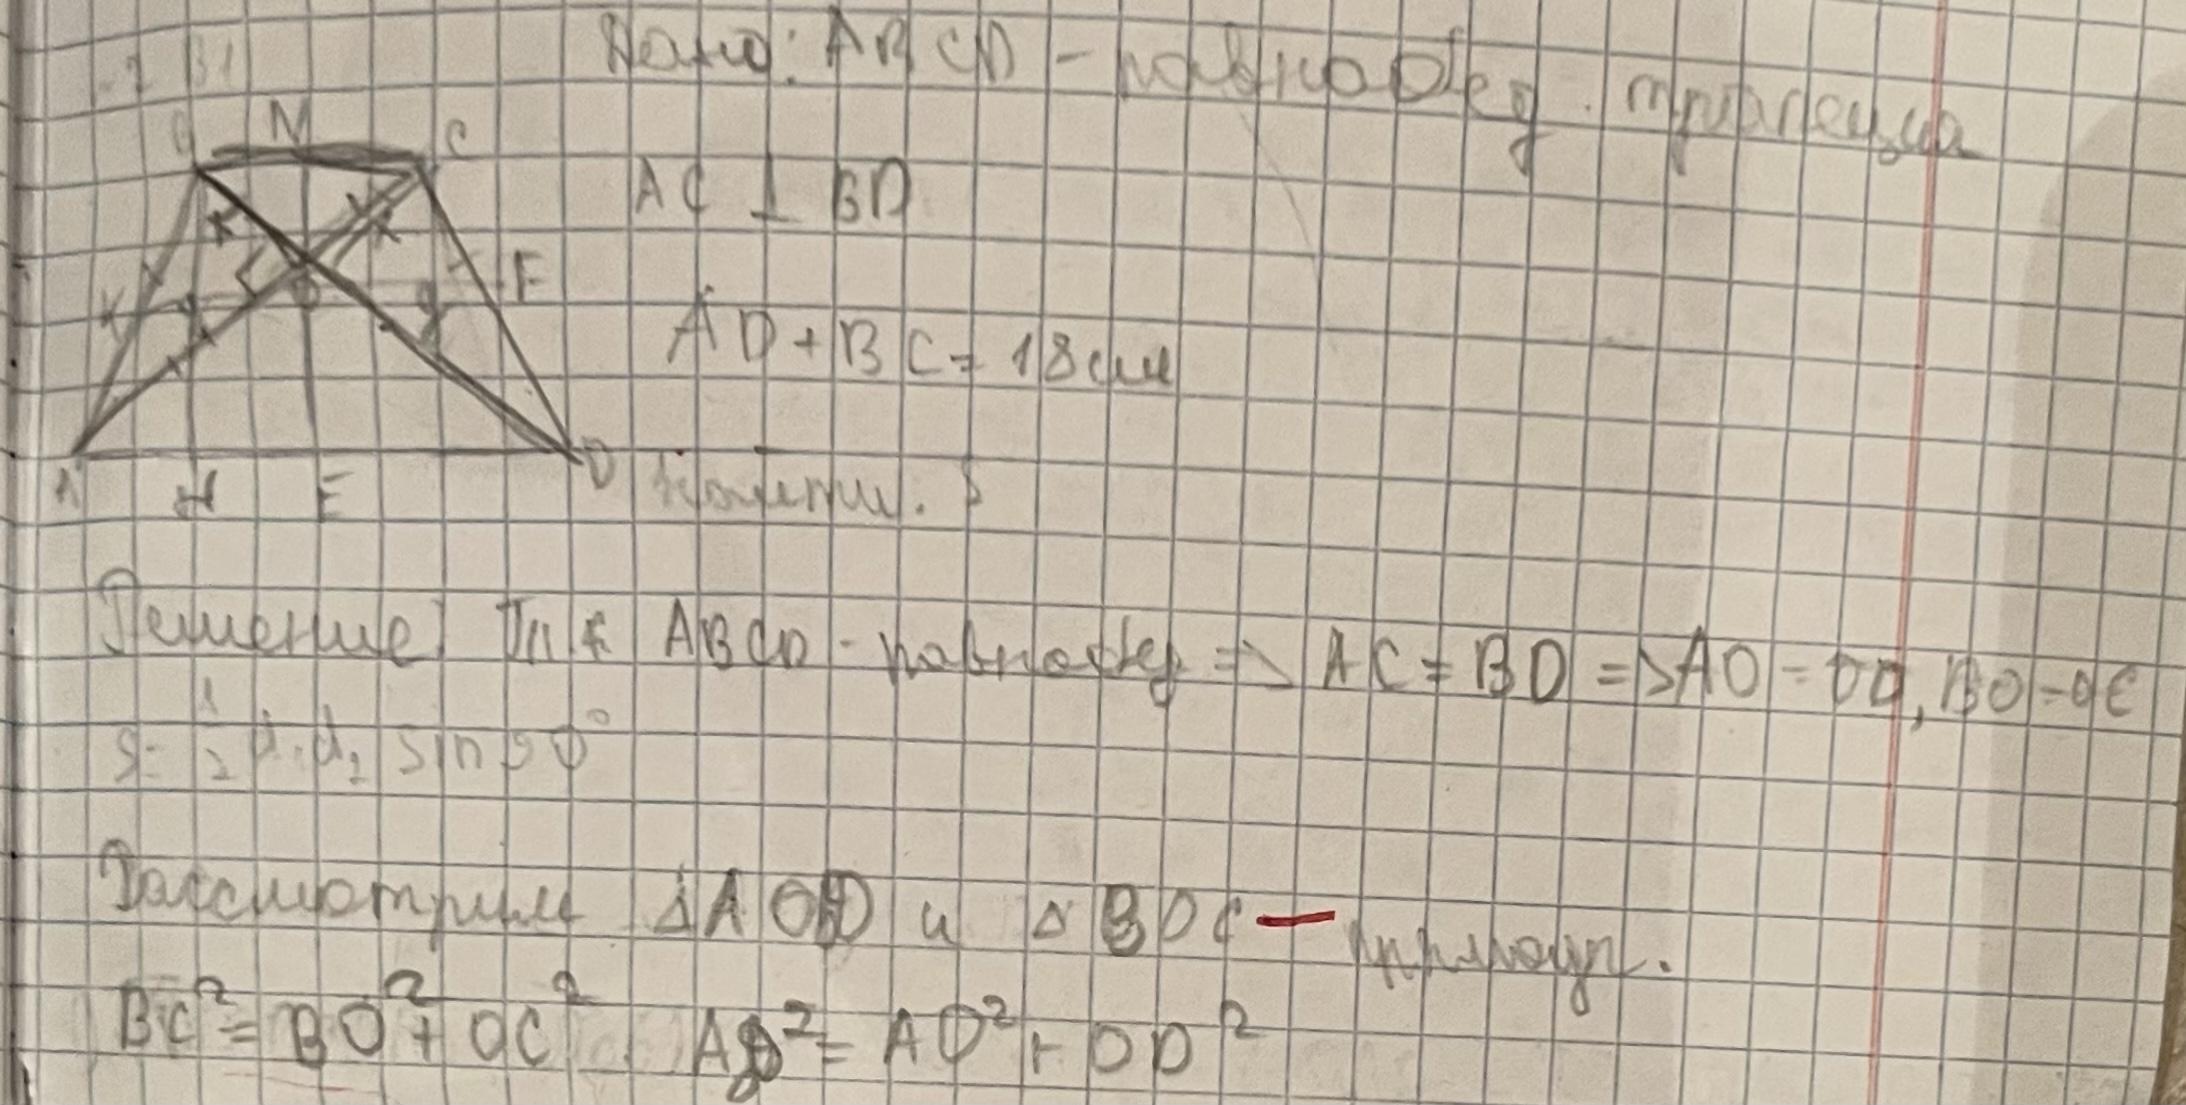 Дано: ABCD - равнобед. трапеция
B M C
AC ⊥ BD
K O F
AD + BC = 18 см
A H E D
Найти: S
Решение: Т.к ABCD - равнобед => AC = BD => AO = OD, BO = OC
S = 1/2 d₁ · d₂ sin 90°
Рассмотрим ΔAOD и ΔBOC — прямоуг.
BC² = BO² + OC² AD² = AO² + OD²